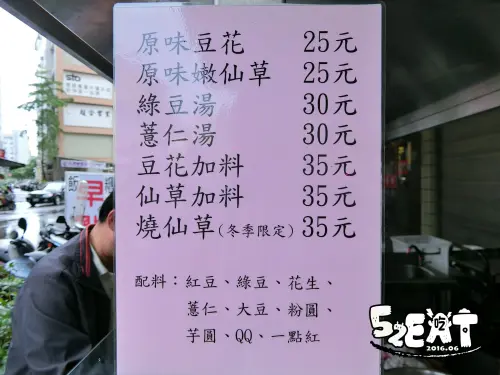 原味豆花 25元
原味嫩仙草 25元
綠豆湯 30元
薏仁湯 30元
豆花加料 35元
仙草加料 35元
燒仙草(冬季限定) 35元
配料：紅豆、綠豆、花生、
薏仁、大豆、粉圓、
芋圓、QQ、一點紅
sto
飯
早
52EAT
吃
2016.06